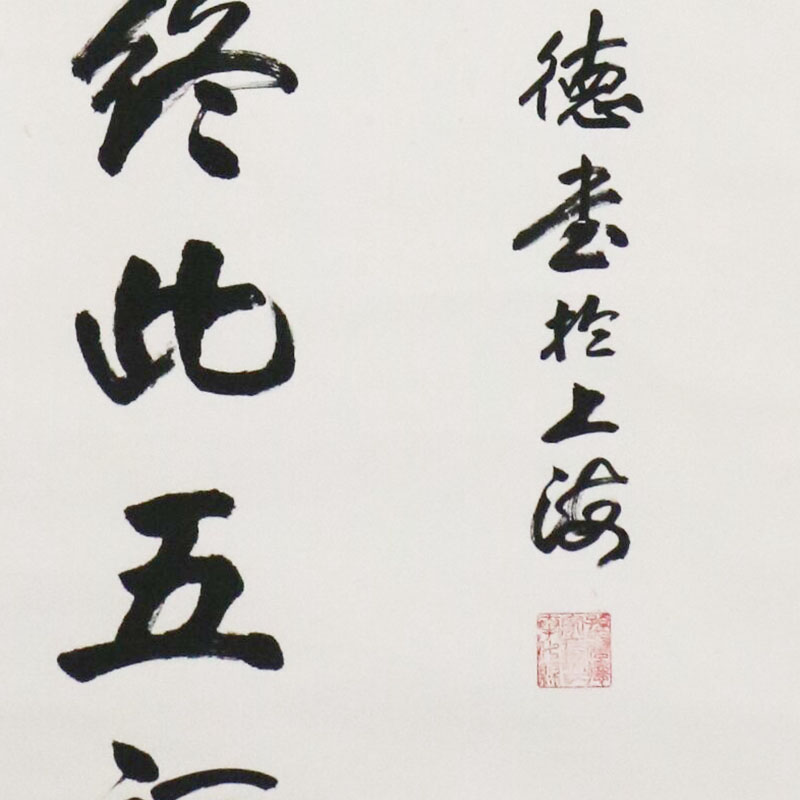 德書於上海
終此五